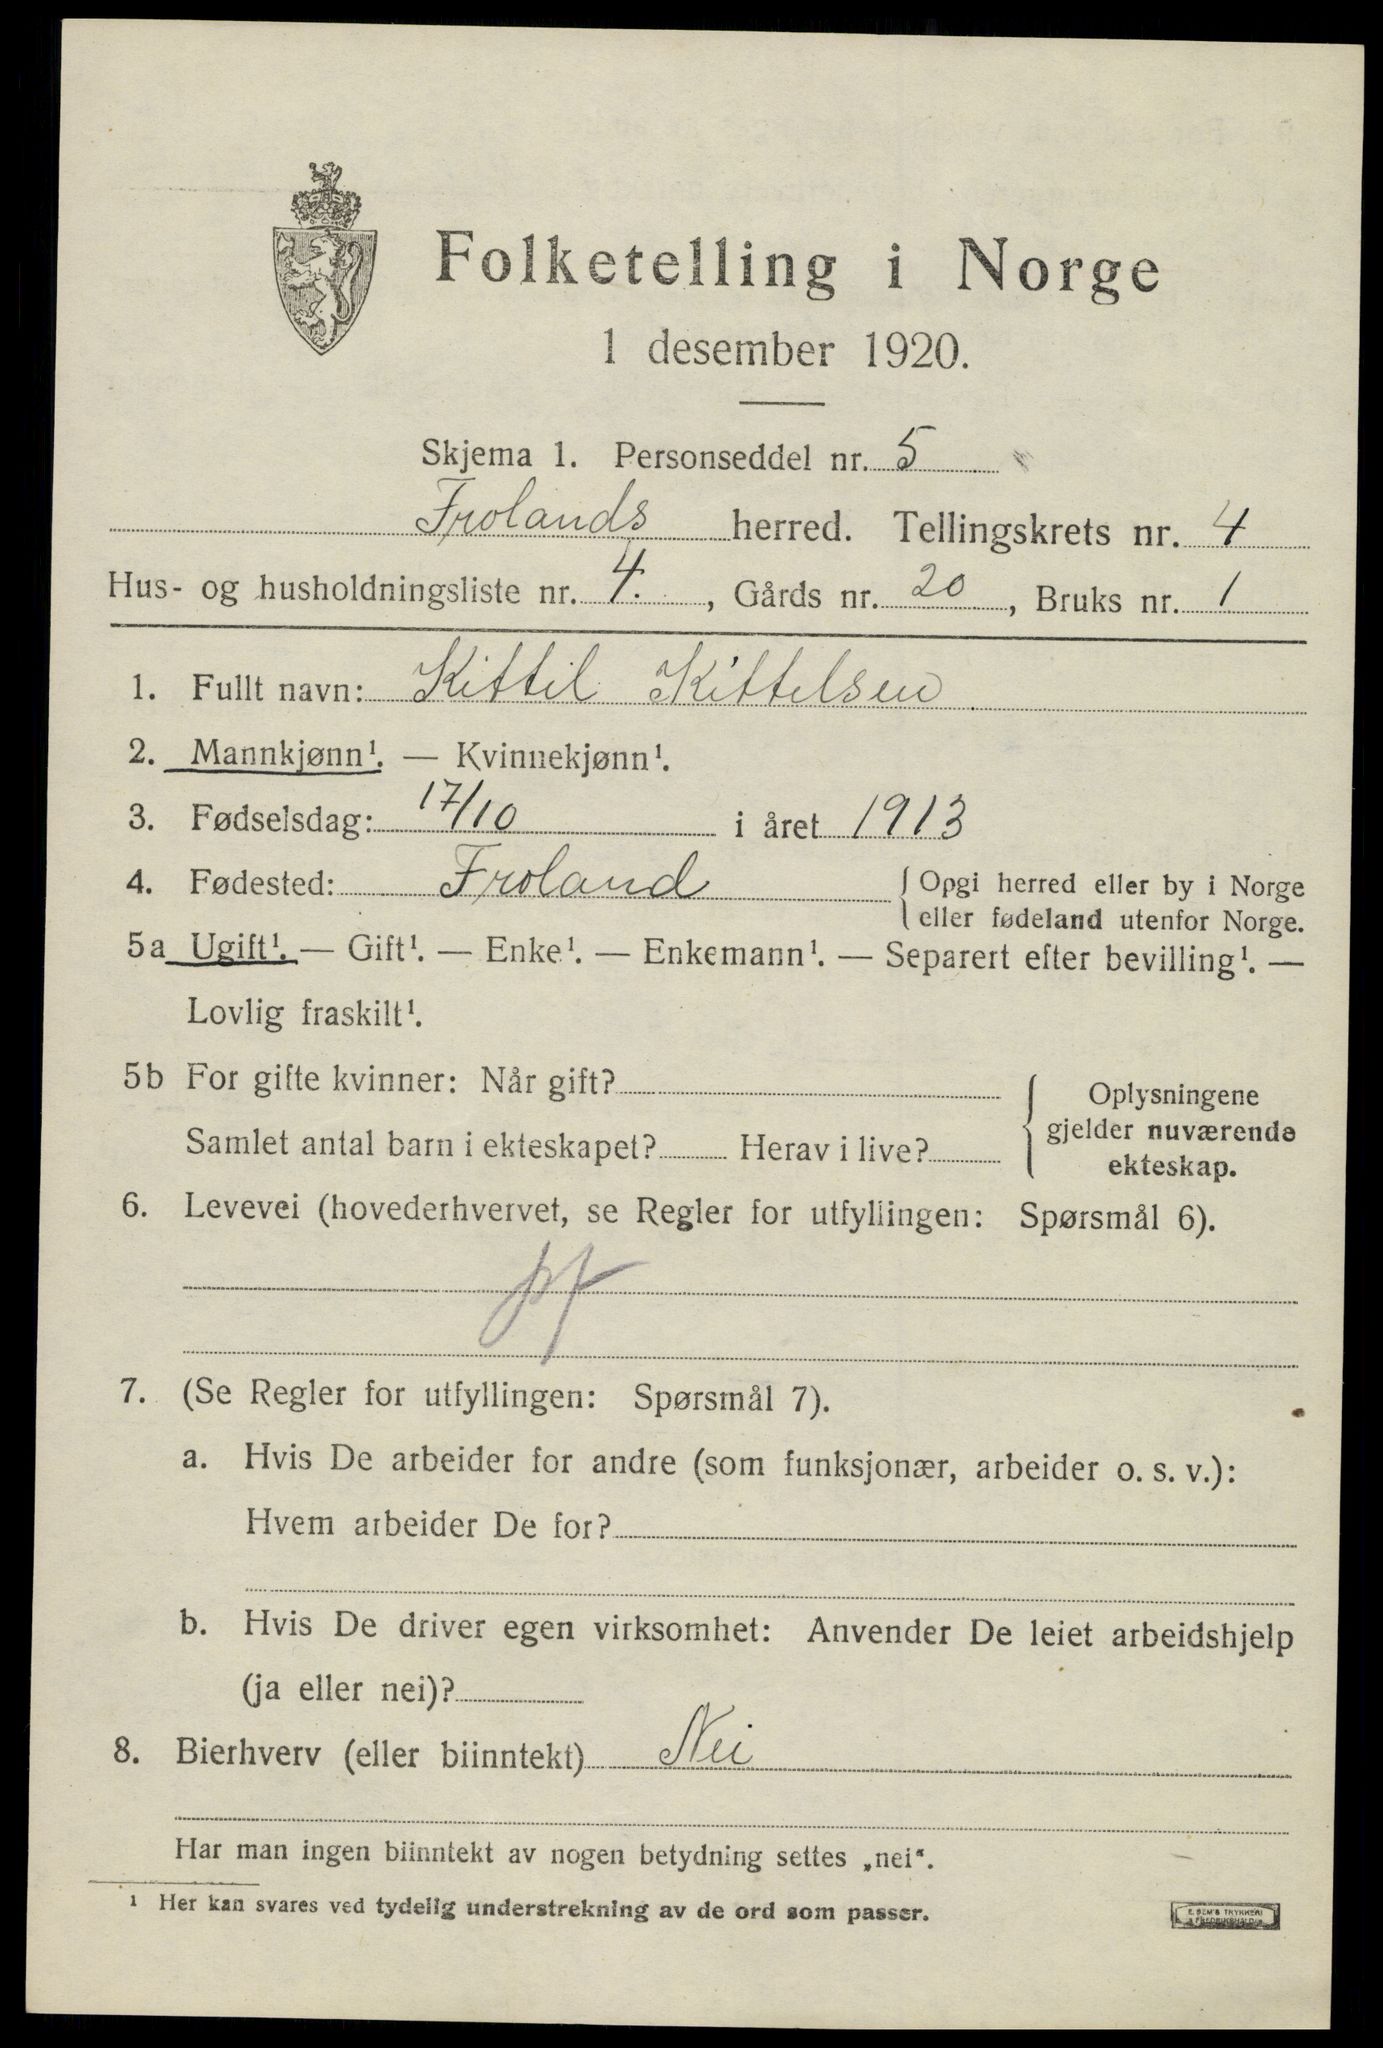 Folketelling i Norge
1 desember 1920.
Skjema 1. Personseddel nr. 5
Frolands herred. Tellingskrets nr. 4
Hus- og husholdningsliste nr. 4. , Gårds nr. 20 , Bruks nr. 1
1. Fullt navn: Kittil Kittelsen
2. Mannkjønn¹. — Kvinnekjønn¹.
3. Fødselsdag: 17/10 i året 1913
4. Fødested: Froland { Opgi herred eller by i Norge
eller fødeland utenfor Norge.
5a Ugift¹. — Gift¹. — Enke¹. — Enkemann¹. — Separert efter bevilling¹. —
Lovlig fraskilt¹.
5b For gifte kvinner: Når gift?
Samlet antal barn i ekteskapet? Herav i live?
{ Oplysningene
gjelder nuværende
ekteskap.
6. Levevei (hovederhvervet, se Regler for utfyllingen: Spørsmål 6).
7. (Se Regler for utfyllingen: Spørsmål 7).
a. Hvis De arbeider for andre (som funksjonær, arbeider o. s. v.):
Hvem arbeider De for?
b. Hvis De driver egen virksomhet: Anvender De leiet arbeidshjelp
(ja eller nei)?
8. Bierhverv (eller biinntekt) Nei
Har man ingen biinntekt av nogen betydning settes „nei“.
¹ Her kan svares ved tydelig understrekning av de ord som passer.
E. SEM'S TRYKKERI
FREDRIKSHALD